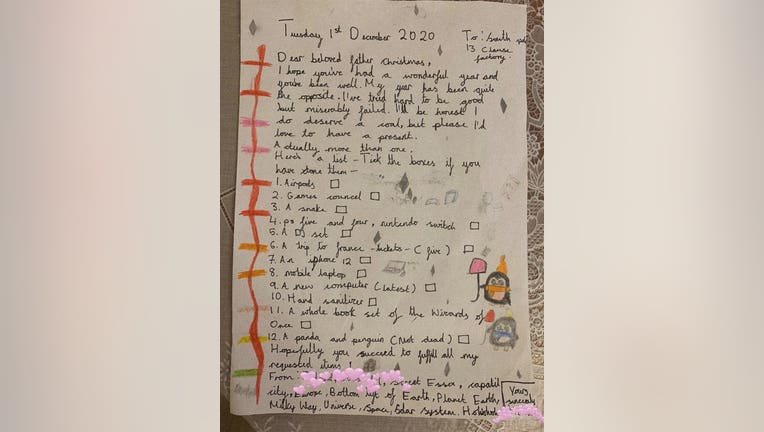 Tuesday 1st December 2020
To: South
13 Clause
factory.
Dear beloved father christmas,
I hope you've had a wonderful year and
you've been well. My year has been quite
the opposite. I've tried hard to be good
but miserably failed. I'll be honest I
do deserve a coal, but please I'd
love to have a present.
Actually more than one.
Here's a list - Tick the boxes if you
have done them -
1. Airpods
2. Games councel
3. A snake
4. ps five and four, nintendo switch
5. A DJ set
6. A trip to france - tickets - (five)
7. An iphone 12
8. mobile laptop
9. A new computer (latest)
10. Hand sanitizer
11. A whole book set of the Wizards of
Once
12. A panda and penguin (Not dead)
Hopefully you succeed to fulfill all my
requested items!
From: street Essex, capatil
city, Europe, Bottom left of Earth, Planet Earth,
Milky Way, Universe, Space, Solar System.
Yours
sincerely